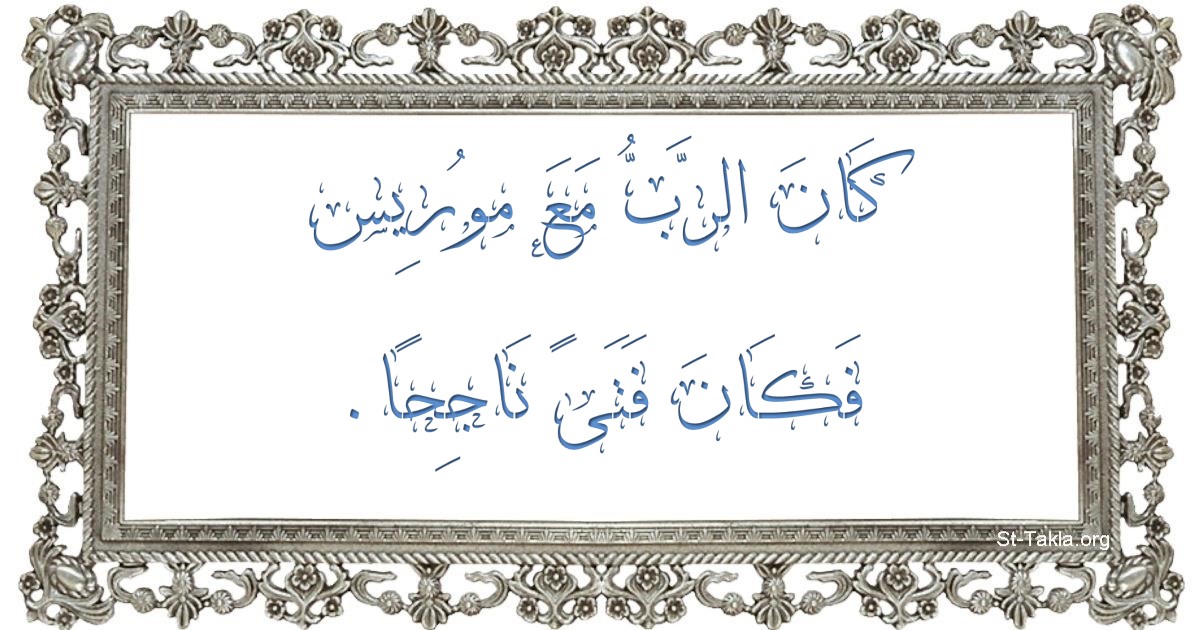 كَانَ الرَّبُّ مَعَ مورُيِس
فَكَانَ فَتَىً نَاجِحًا .
St-Takla.org